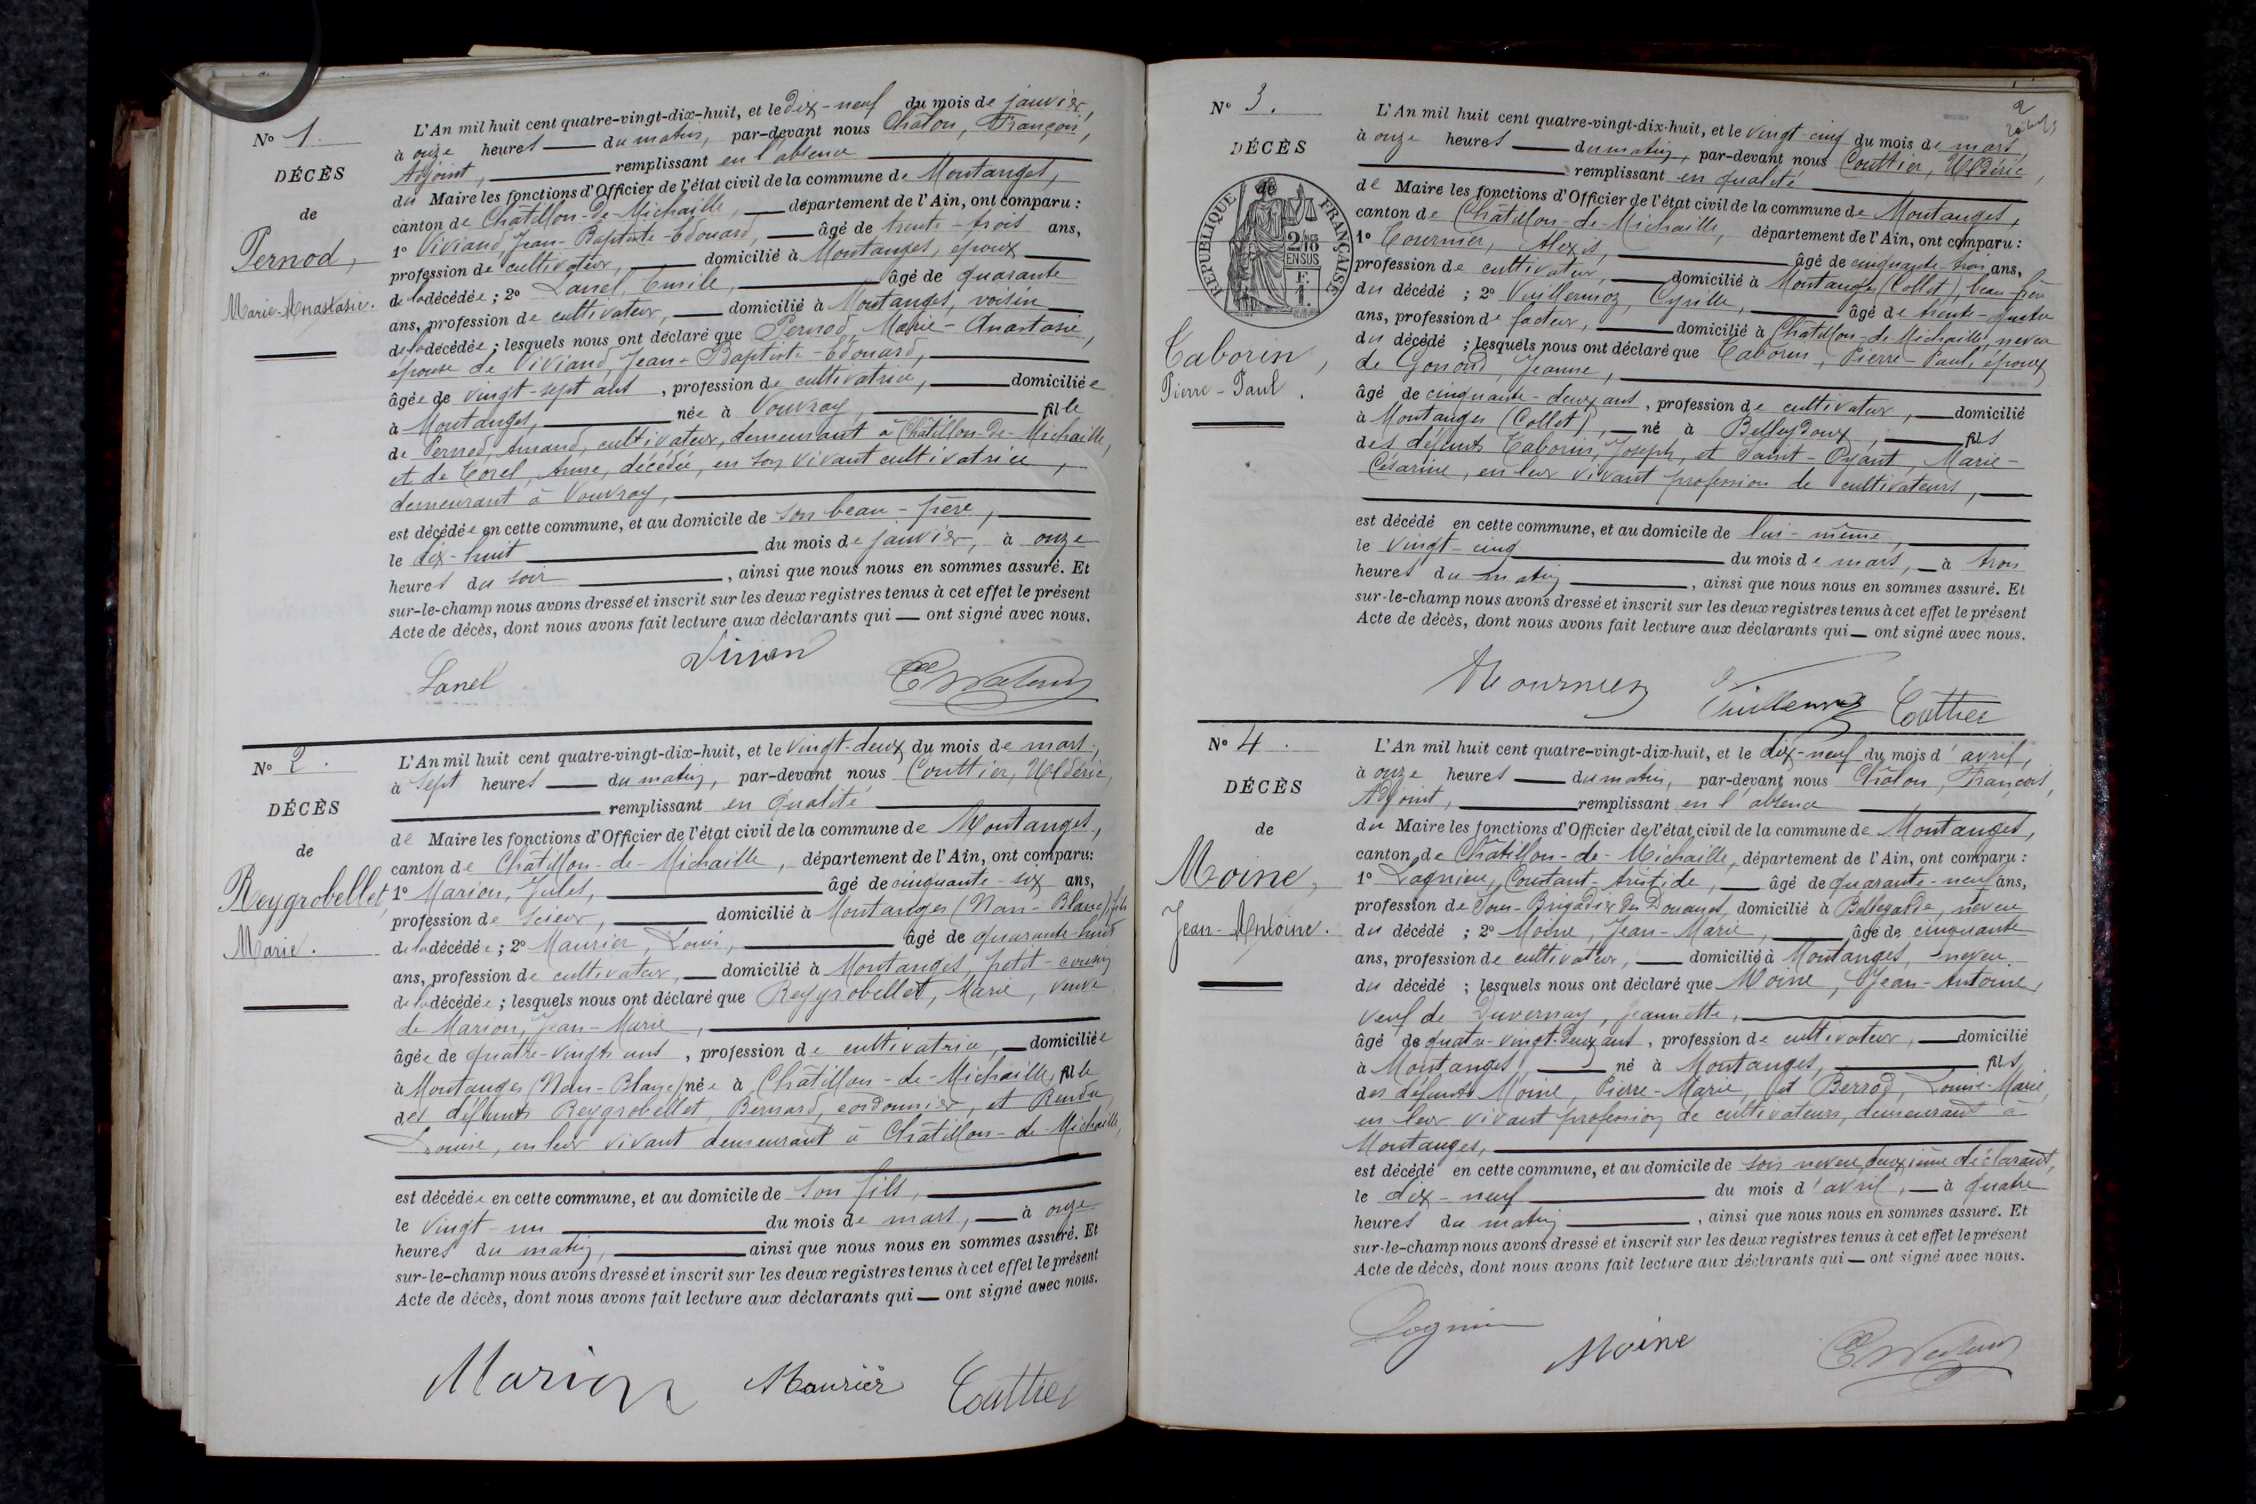 N° 1.
DÉCÈS
de
Pernod,
Marie-Anastasie.
L'An mil huit cent quatre-vingt-dix-huit, et le Dix-neuf du mois de janvier,
à onze heures du matin, par-devant nous Châlon, François,
Adjoint, remplissant en l'absence
du Maire les fonctions d'Officier de l'état civil de la commune de Montanges,
canton de Châtillon-de-Michaille, département de l'Ain, ont comparu :
1° Viviand, Jean-Baptiste-Edouard, âgé de trente-trois ans,
profession de cultivateur, domicilié à Montanges, époux
de la décédée ; 2° Lanel, Emile, âgé de quarante
ans, profession de cultivateur, domicilié à Montanges, voisin
de la décédée ; lesquels nous ont déclaré que Pernod, Marie-Anastasie,
épouse de Viviand, Jean-Baptiste-Edouard,
âgée de vingt-sept ans, profession de cultivatrice, domiciliée
à Montanges, née à Vouvray, fille
de Pernod, Amand, cultivateur, demeurant à Châtillon-de-Michaille,
et de Corel, Anne, décédée, en son vivant cultivatrice,
demeurant à Vouvray,
est décédée en cette commune, et au domicile de son beau-père,
le dix-huit du mois de janvier, à onze
heures du soir, ainsi que nous nous en sommes assuré. Et
sur-le-champ nous avons dressé et inscrit sur les deux registres tenus à cet effet le présent
Acte de décès, dont nous avons fait lecture aux déclarants qui — ont signé avec nous.
Lanel
N° 2.
DÉCÈS
de
Reygrobellet,
Marie.
L'An mil huit cent quatre-vingt-dix-huit, et le vingt-deux du mois de mars,
à sept heures du matin, par-devant nous Couttier, Uldéric,
remplissant en qualité
de Maire les fonctions d'Officier de l'état civil de la commune de Montanges,
canton de Châtillon-de-Michaille, département de l'Ain, ont comparu:
1° Marion, Jules, âgé de cinquante-six ans,
profession de scieur, domicilié à Montanges (Nan-Blanc), fils
de la décédée ; 2° Maurier, Louis, âgé de quarante-huit
ans, profession de cultivateur, domicilié à Montanges, petit-cousin
de la décédée ; lesquels nous ont déclaré que Reygrobellet, Marie, veuve
de Marion, Jean-Marie,
âgée de quatre-vingts ans, profession de cultivatrice, domiciliée
à Montanges (Nan-Blanc) née à Châtillon-de-Michaille, fille
des défunts Reygrobellet, Bernard, cordonnier, et Rendu,
Louise, en leur vivant demeurant à Châtillon-de-Michaille,
est décédée en cette commune, et au domicile de son fils,
le vingt-un du mois de mars, à onze
heures du matin, ainsi que nous nous en sommes assuré. Et
sur-le-champ nous avons dressé et inscrit sur les deux registres tenus à cet effet le présent
Acte de décès, dont nous avons fait lecture aux déclarants qui — ont signé avec nous.
Marion Maurier Couttier
N° 3.
2
DÉCÈS
de
RÉPUBLIQUE FRANÇAISE
2/10
EN SUS
Taborin,
Pierre-Paul.
L'An mil huit cent quatre-vingt-dix-huit, et le vingt-cinq du mois de mars
à onze heures du matin, par-devant nous Couttier, Uldéric,
remplissant en qualité
de Maire les fonctions d'Officier de l'état civil de la commune de Montanges,
canton de Châtillon-de-Michaille, département de l'Ain, ont comparu :
1° Tournier, Alexis, âgé de cinquante-trois ans,
profession de cultivateur, domicilié à Montanges (Collet), beau-frère
du décédé ; 2° Vuillermoz, Cyrille, âgé de trente-quatre
ans, profession de facteur, domicilié à Châtillon-de-Michaille, neveu
du décédé ; lesquels nous ont déclaré que Taborin, Pierre-Paul, époux
de Jeanne,
âgé de cinquante-deux ans, profession de cultivateur, domicilié
à Montanges (Collet), né à Belleydoux, fils
des défunts Taborin, Joseph, et Saint-Oyant, Marie-
Césarine, en leur vivant profession de cultivateurs,
est décédé en cette commune, et au domicile de lui-même,
le vingt-cinq du mois de mars, à trois
heures du matin, ainsi que nous nous en sommes assuré. Et
sur-le-champ nous avons dressé et inscrit sur les deux registres tenus à cet effet le présent
Acte de décès, dont nous avons fait lecture aux déclarants qui — ont signé avec nous.
Tournier Vuillermoz Couttier
N° 4.
DÉCÈS
de
Moine,
Jean-Antoine.
L'An mil huit cent quatre-vingt-dix-huit, et le dix-neuf du mois d'avril,
à onze heures du matin, par-devant nous Châlon, François,
Adjoint, remplissant en l'absence
du Maire les fonctions d'Officier de l'état civil de la commune de Montanges,
canton de Châtillon-de-Michaille, département de l'Ain, ont comparu :
1° Lognieu, Constant-Aristide, âgé de quarante-neuf ans,
profession de Sous-Brigadier des Douanes, domicilié à Bellegarde, neveu
du décédé ; 2° Moine, Jean-Marie, âgé de cinquante
ans, profession de cultivateur, domicilié à Montanges, neveu
du décédé ; lesquels nous ont déclaré que Moine, Jean-Antoine,
veuf de Duvernay, Jeannette,
âgé de quatre-vingt-deux ans, profession de cultivateur, domicilié
à Montanges, né à Montanges, fils
des défunts Moine, Pierre-Marie, et Berrod, Louise-Marie,
en leur vivant profession de cultivateurs, demeurant à
Montanges,
est décédé en cette commune, et au domicile de son neveu, deuxième déclarant,
le dix-neuf du mois d'avril, à quatre
heures du matin, ainsi que nous nous en sommes assuré. Et
sur-le-champ nous avons dressé et inscrit sur les deux registres tenus à cet effet le présent
Acte de décès, dont nous avons fait lecture aux déclarants qui — ont signé avec nous.
Moine